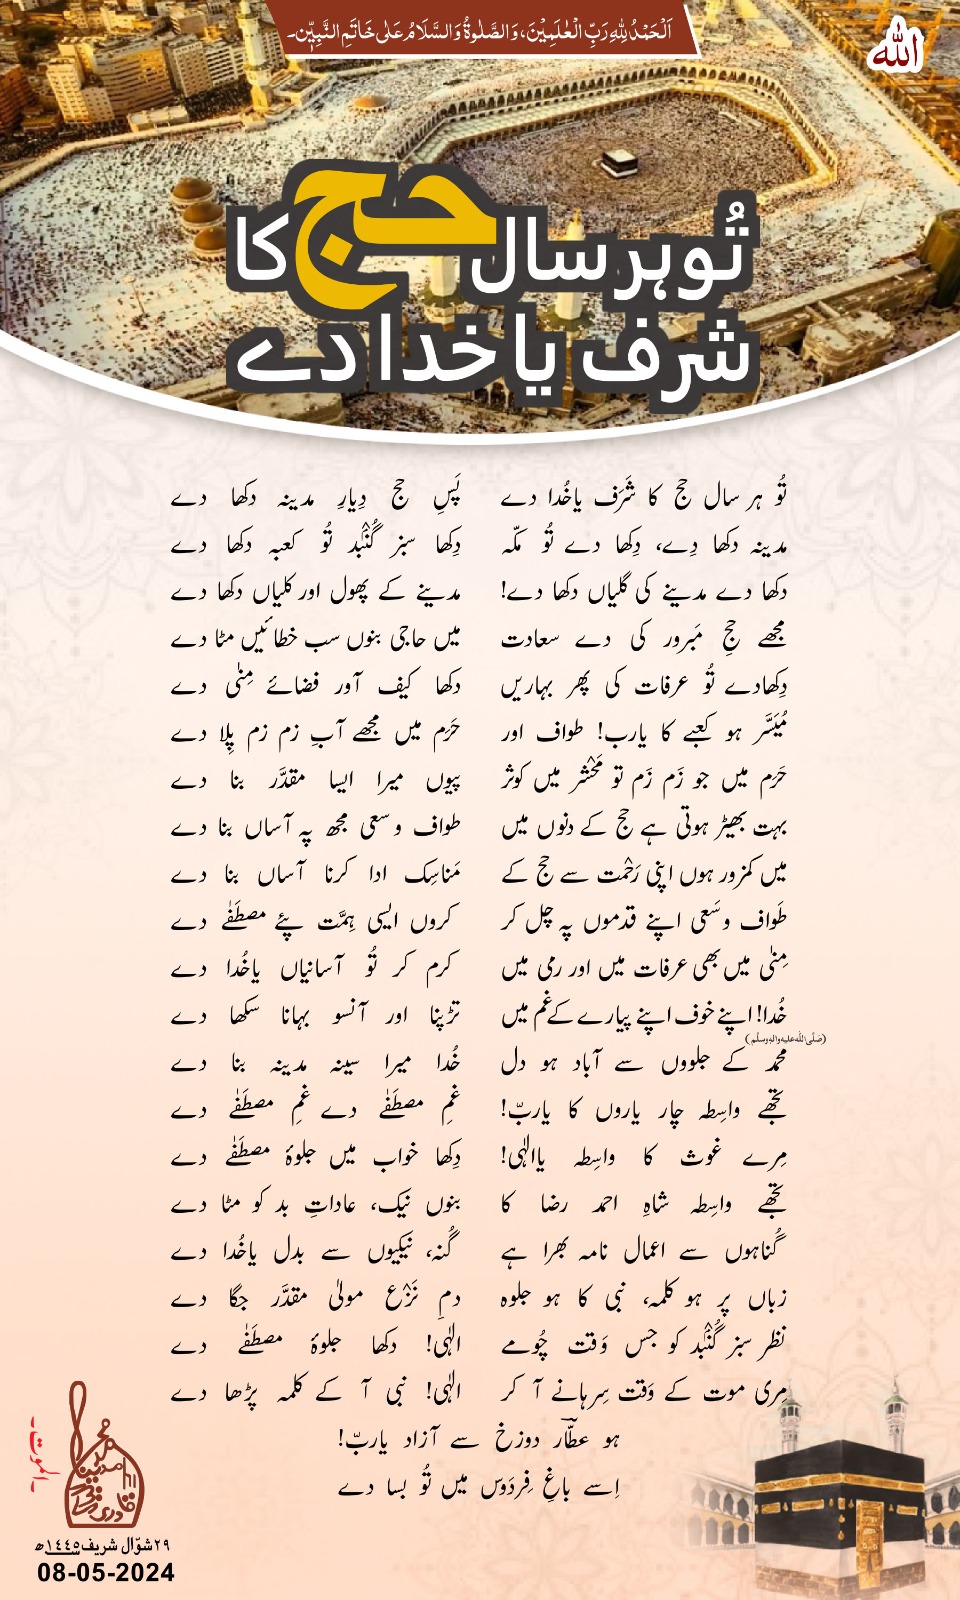 اَلْحَمْدُ لِلّٰهِ رَبِّ الْعٰلَمِیْنَ، وَالصَّلٰوۃُ وَالسَّلَامُ عَلٰی خَاتَمِ النَّبِیّٖن۔
اللہ
تُو ہر سال حج کا
شرف یا خدا دے
تُو ہر سال حج کا شَرَف یاخُدا دے پَسِ حج دِیارِ مدینہ دکھا دے
مدینہ دکھا دِے، دِکھا دے تُو مکّہ دِکھا سبز گُنْبُد تُو کعبہ دکھا دے
دکھا دے مدینے کی گلیاں دکھا دے! مدینے کے پھول اور کلیاں دکھا دے
مجھے حجِ مَبرور کی دے سعادت میں حاجی بنوں سب خطائیں مٹا دے
دِکھادے تُو عرفات کی پھر بہاریں دکھا کیف آور فضائے مِنٰی دے
مُیَسَّر ہو کعبے کا یارب! طواف اور حَرَم میں مجھے آبِ زم زم پِلا دے
حَرَم میں جو زَم زَم تو مَحْشر میں کوثر پیوں میرا ایسا مقدَّر بنا دے
بہت بھیڑ ہوتی ہے حج کے دنوں میں طواف و سعی مجھ پہ آساں بنا دے
میں کمزور ہوں اپنی رَحْمت سے حج کے مَناسِک ادا کرنا آساں بنا دے
طَواف و سَعی اپنے قدموں پہ چل کر کروں ایسی ہِمَّت پئے مصطَفٰے دے
مِنٰی میں بھی عرفات میں اور رمی میں کرم کر تُو آسانیاں یاخُدا دے
خُدا! اپنے خوف اپنے پیارے کے غم میں تڑپنا اور آنسو بہانا سکھا دے
(صلّی اللہ علیہ واٰلہٖ وسلّم)
محمد کے جلووں سے آباد ہو دل خُدا میرا سینہ مدینہ بنا دے
تجھے واسِطہ چار یاروں کا یاربّ! غمِ مصطَفٰے دے غمِ مصطَفٰے دے
مِرے غوث کا واسِطہ یاالٰہی! دِکھا خواب میں جلوۂ مصطَفٰے دے
تجھے واسِطہ شاہِ احمد رضا کا بنوں نیک، عاداتِ بد کو مٹا دے
گُناہوں سے اعمال نامہ بھرا ہے گُنہ، نیکیوں سے بدل یاخُدا دے
زباں پر ہو کلمہ، نبی کا ہو جلوہ دمِ نَزْع مولیٰ مقدَّر جگا دے
نظر سبز گُنْبُد کو جس وَقت چُومے الٰہی! دکھا جلوۂ مصطَفٰے دے
مِری موت کے وَقت سِرہانے آ کر الٰہی! نبی آ کے کلمہ پڑھا دے
ہو عطّار دوزخ سے آزاد یاربّ!
اِسے باغِ فِردَوس میں تُو بسا دے
الموت۔
۲۹شوّال شریف ۱٤٤٥ھ
08-05-2024